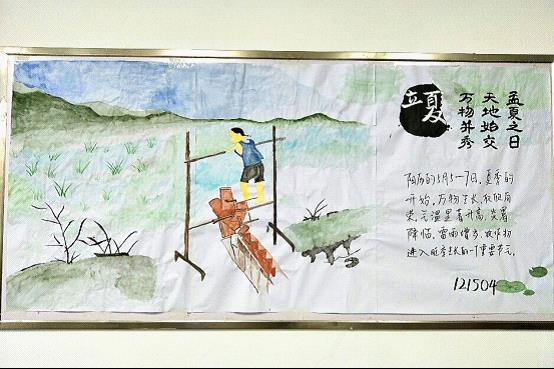 立夏
孟夏之日
天地始交
万物并秀
阳历的5月5-7日,夏季的
开始,万物生长,欣欣向
荣,气温显著升高,炎暑
降临,雷雨增多,农作物
进入旺季生长的一个重要节气.
121504